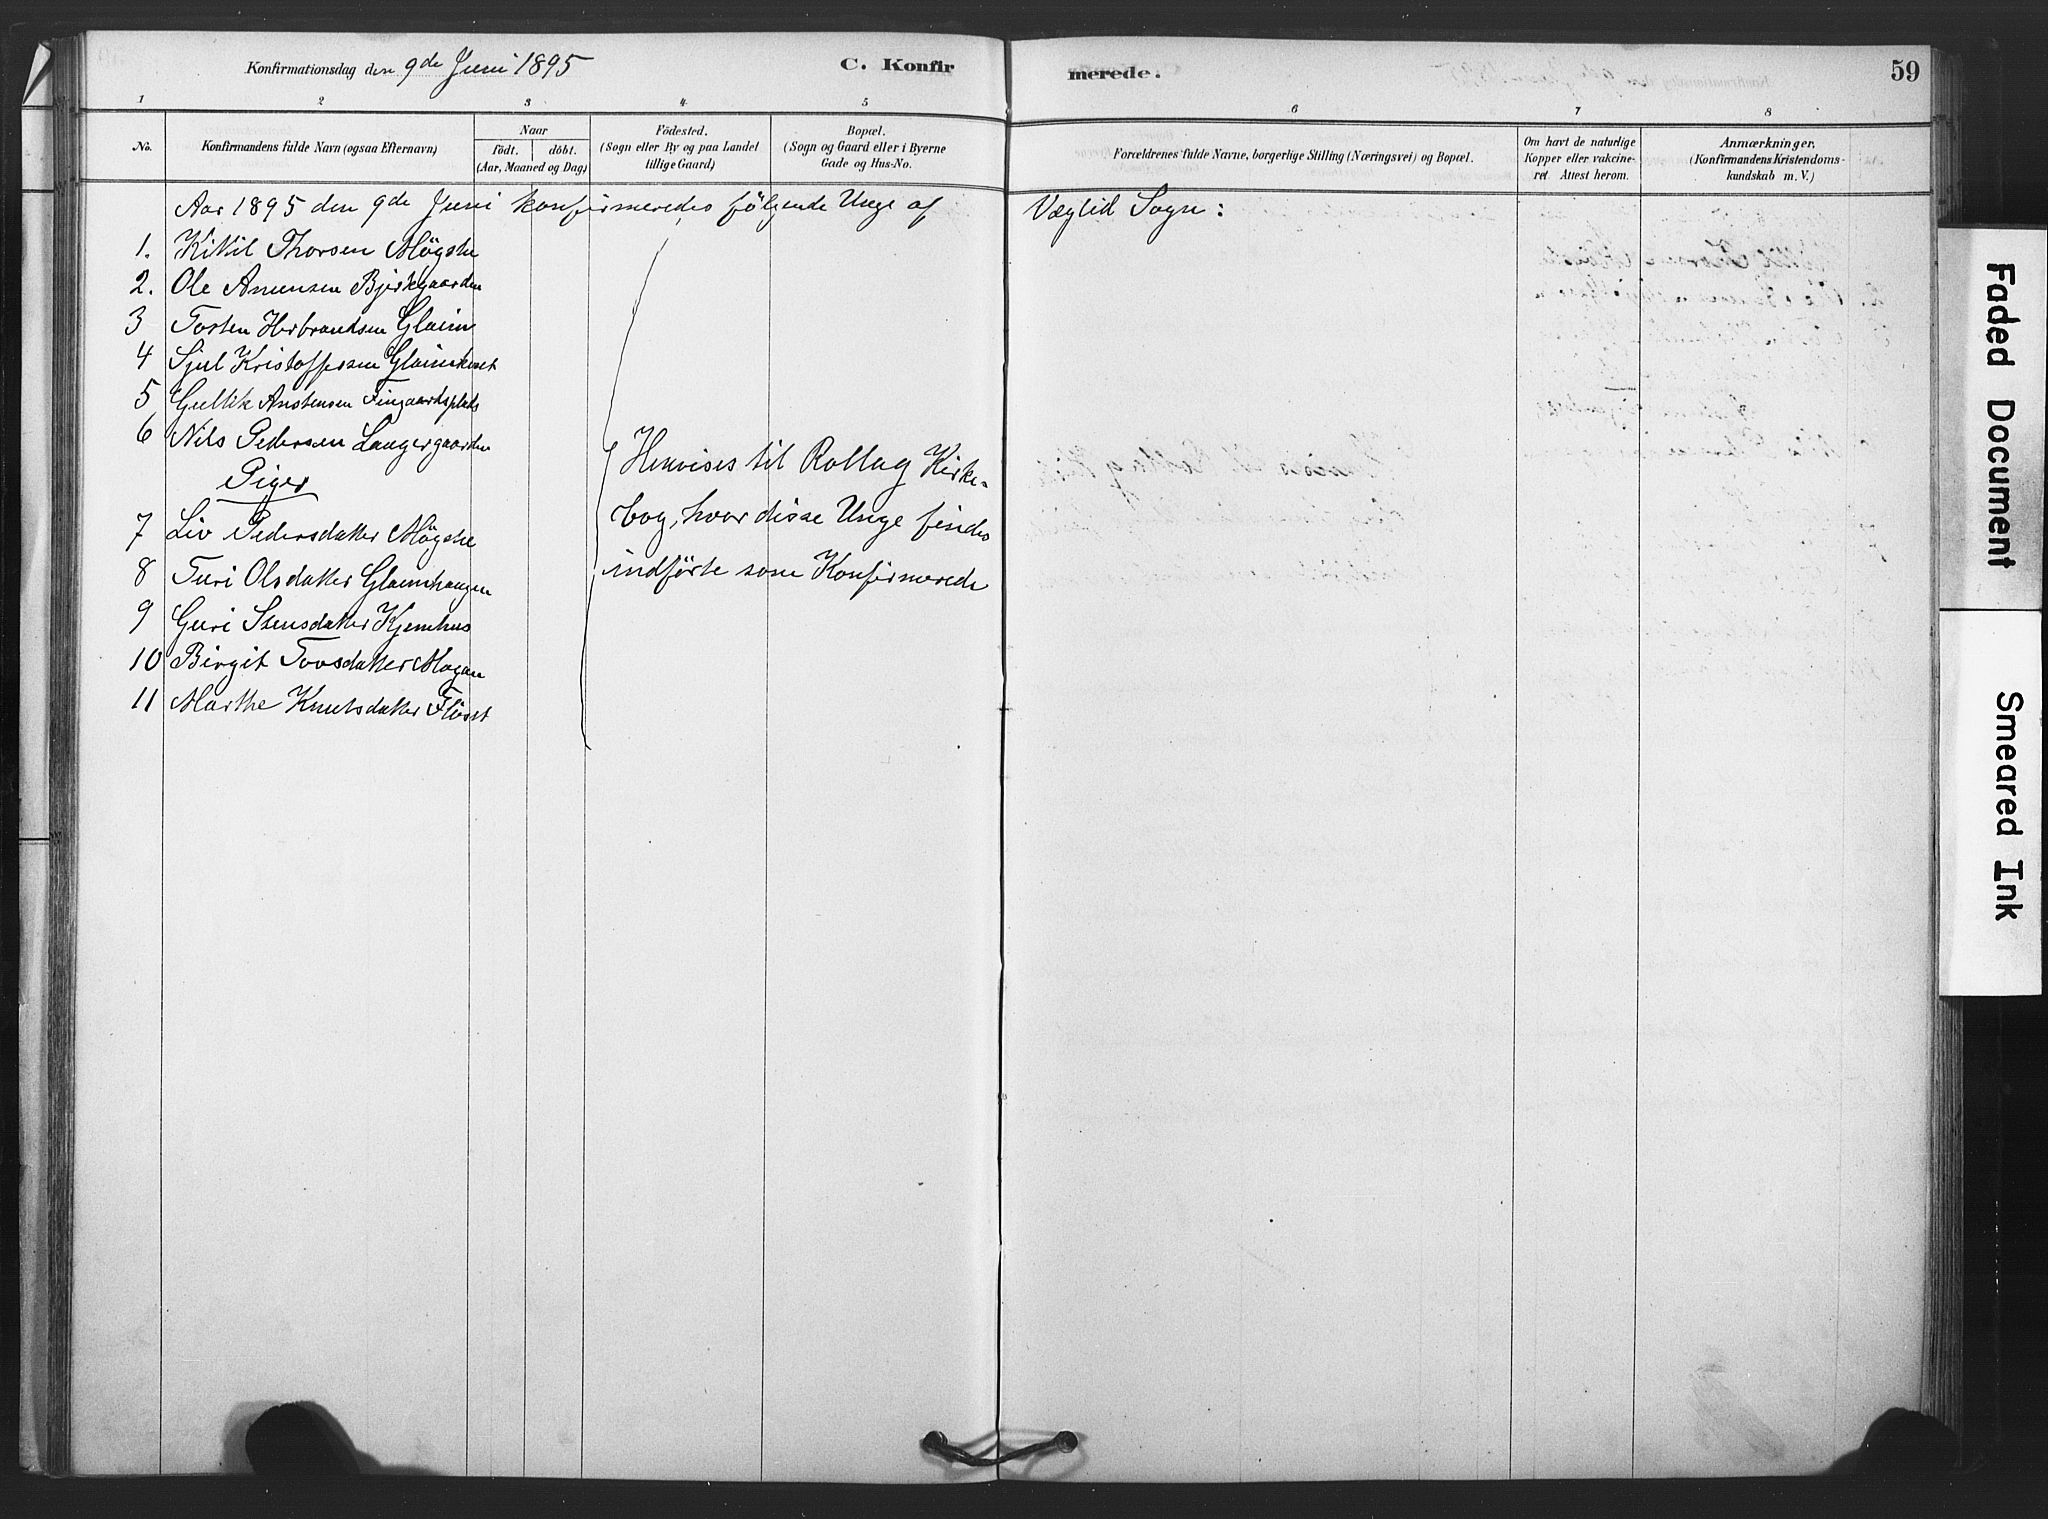 Konfirmationsdag den 9de Juni 1895
C. Konfirmerede.
59
1 2 3 4 5 6 7 8
No.
Konfirmandens fulde Navn (ogsaa Efternavn)
Naar
födt. döbt.
(Aar, Maaned og Dag)
Födested.
(Sogn eller By og paa Landet
tillige Gaard)
Bopæl.
(Sogn og Gaard eller i Byerne
Gade og Hus-No.
Forældrenes fulde Navne, borgerlige Stilling (Næringsvei) og Bopæl.
Om havt de naturlige
Kopper eller vakcine-
ret. Attest herom.
Anmærkninger,
(Konfirmandens Kristendoms-
kundskab m. V.)
Aar 1895 den 9de Juni konfirmeredes følgende Unge af Veglid Sogn:
1. Kittil Thorsen Møgste
2. Ole Amunsen Bjerkgaarden
3 Torsten Herbrandsen Glaim
4 Sjul Kristoffersen Glaimhuset
5 Gullik Anstensen Fingaardsplads
6 Nils Pedersen Laugergaarden
Piger
7 Liv Pedersdatter Møgste
8 Turi Olsdatter Glaimhaugen
9 Guri Stensdatter Kjemhus
10 Birgit Tovsdatter Mogan
11 Marthe Knutsdatter Fløset
Henvises til Rollag Kirke-
bog, hvor disse Unge findes
indførte som Konfirmerede
Faded Document
Smeared Ink